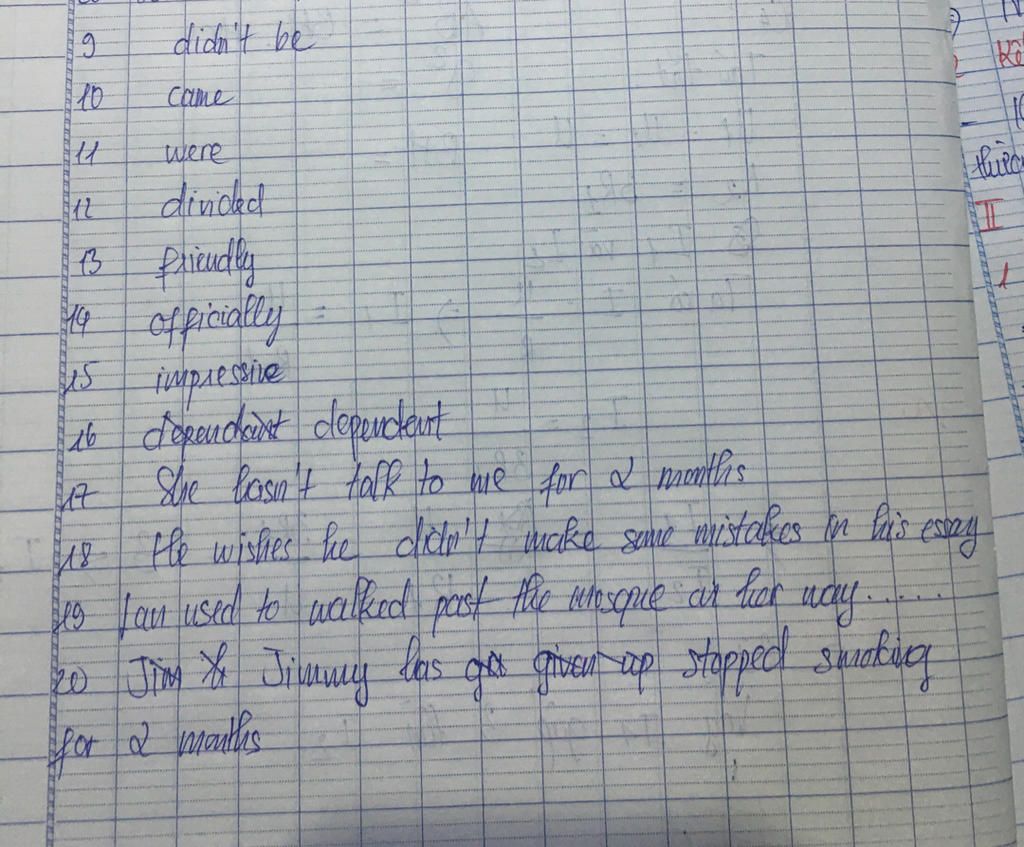 9 didn't be
10 came
11 were
12 divided
13 friendly
14 officially
15 impressive
16 dependant dependent
17 She hasn't talk to me for 2 months
18 He wishes he didn't make some mistakes in his essay
19 Lan used to walked past the mosque on her way.....
20 Jim & Jimmy has given up stopped smoking
for 2 months
II
1